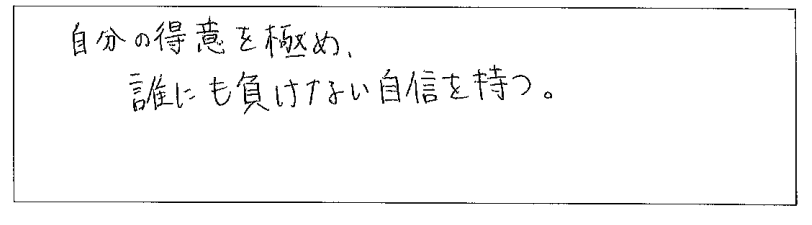 自分の得意を極め、
誰にも負けない自信を持つ。